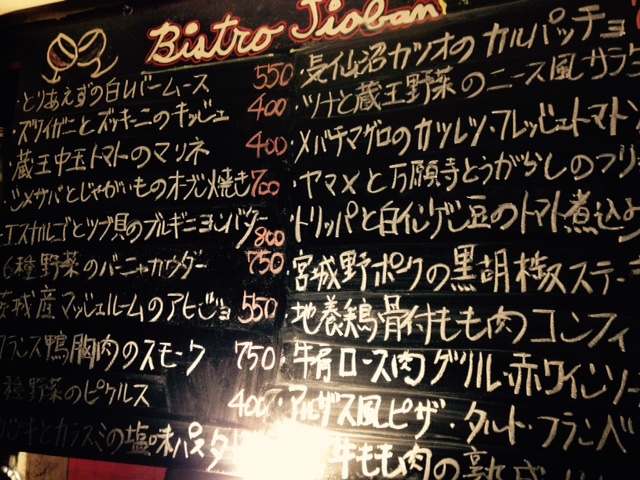 Bistro Jioban
・とりあえずの白レバームース 550
・ズワイガニとズッキーニのキッシュ 400
蔵王中玉トマトのマリネ 400
・シメサバとじゃがいものオーブン焼き 700
エスカルゴとツブ貝のブルギニヨンバター 800
6種野菜のバーニャカウダー 750
茨城産マッシュルームのアヒージョ 550
フランス鴨胸肉のスモーク 750
種野菜のピクルス 400
とカラスミの塩味パスタ
・気仙沼カツオのカルパッチョ
・ツナと蔵王野菜のニース風サラ
・メバチマグロのカツレツ・フレッシュトマト
・ヤマメと万願寺とうがらしのフリ
・トリッパと白インゲン豆のトマト煮込み
・宮城野ポークの黒胡椒ステー
・地養鶏骨付もも肉コンフィ
・牛肩ロース肉グリル・赤ワインソー
・アルザス風ピザ・タルト・フランベ
牛もも肉の熟成